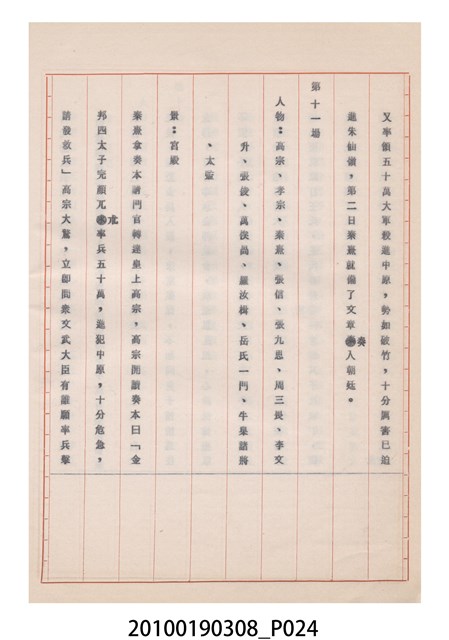 又率領五十萬大軍殺進中原，勢如破竹，十分厲害已迫
進朱仙鎮，第二日秦熹就備了文章奏入朝廷。
第十一場
人物：高宗、孝宗、秦熹、張信、張九思、周三畏、李文
升、張俊、萬俟卨、羅汝楫、岳氏一門、牛皋諸將
、太監
景：宮殿
秦熹拿奏本請門官轉達皇上高宗，高宗閱讀奏本曰「金
邦四太子完顏兀朮率兵五十萬，進犯中原，十分危急，
請發救兵」高宗大驚，立即問眾文武大臣有誰願率兵擊
20100190308_P024